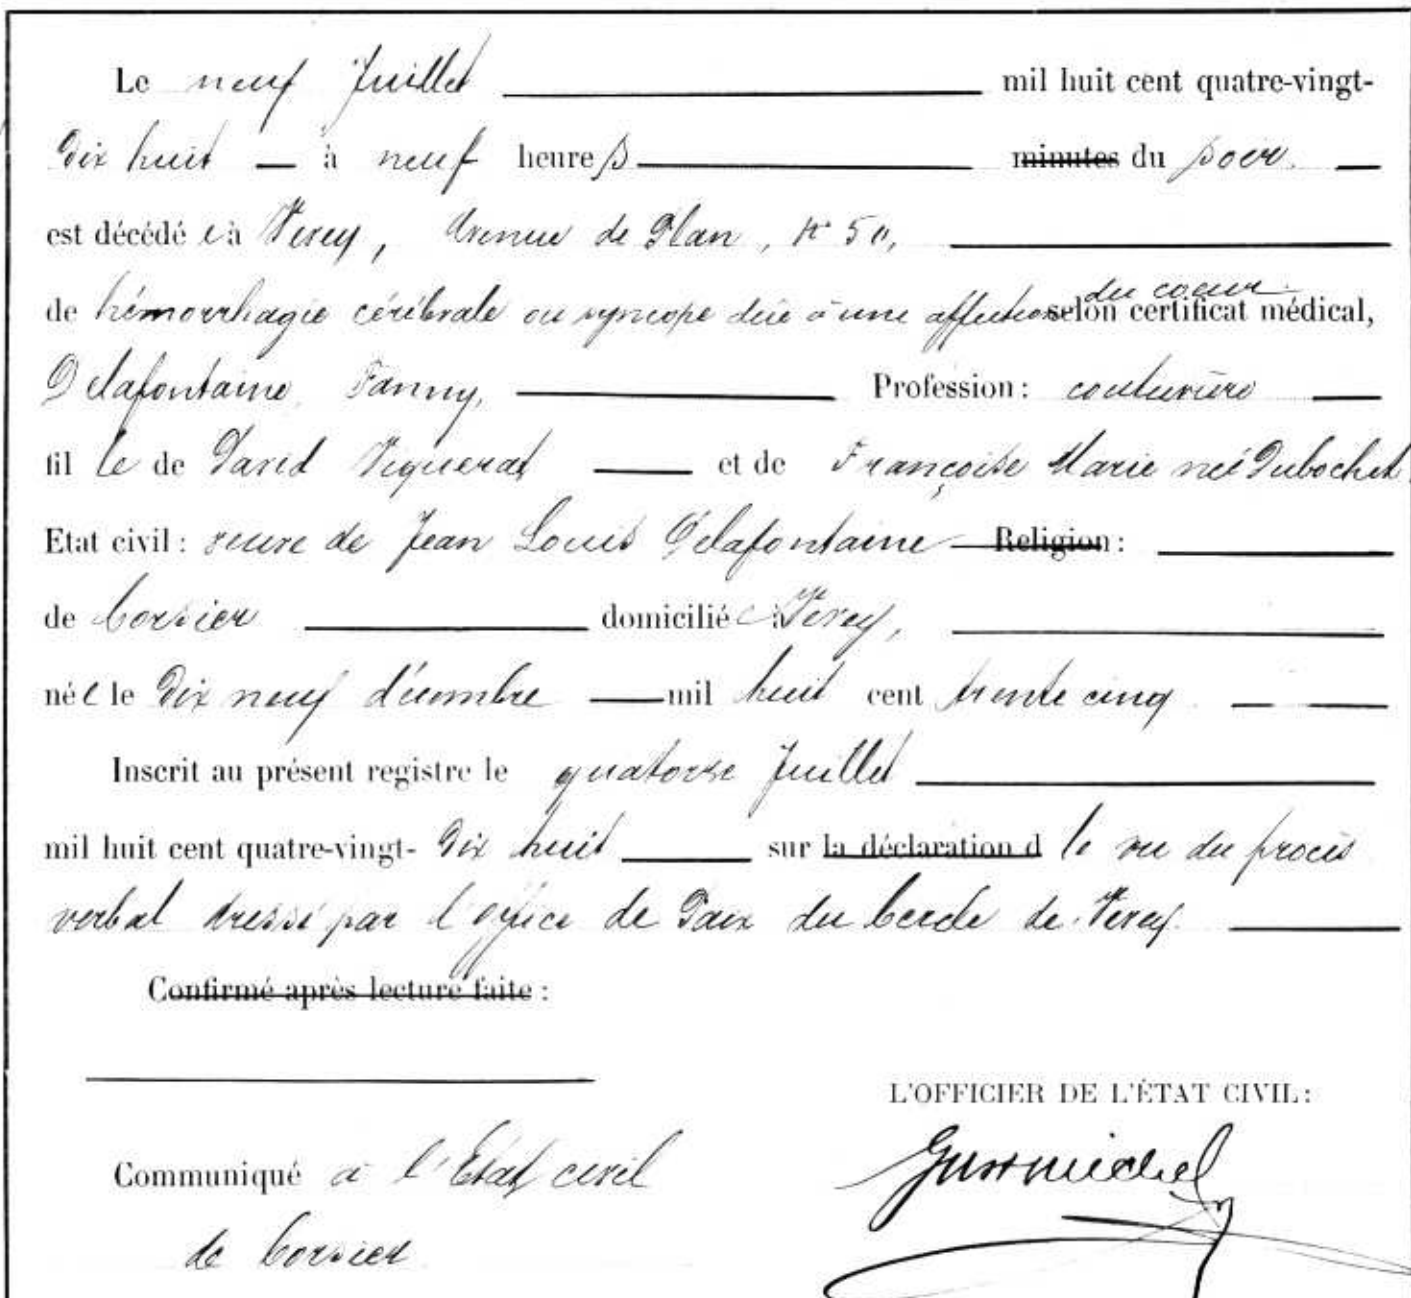 Le neuf Juillet mil huit cent quatre-vingt-
dix huit à neuf heures minutes du soir.
est décédée à Vevey, Avenue de Plan, N° 50,
de hémorrhagie cérébrale ou syncope dûe à une affection du coeur selon certificat médical,
Delafontaine, Fanny, Profession: couturière
fille de David Viquerat et de Françoise Marie née Dubochet.
Etat civil: veuve de Jean Louis Delafontaine Religion:
de Corsier domiciliée à Vevey,
née le dix neuf décembre mil huit cent trente cinq
Inscrit au présent registre le quatorze Juillet
mil huit cent quatre-vingt- dix huit sur la déclaration d le vu du procès
verbal dressé par l'office de Paix du Cercle de Vevey.
Confirmé après lecture faite:
L'OFFICIER DE L'ÉTAT CIVIL:
Communiqué à l'Etat civil
de Corsier